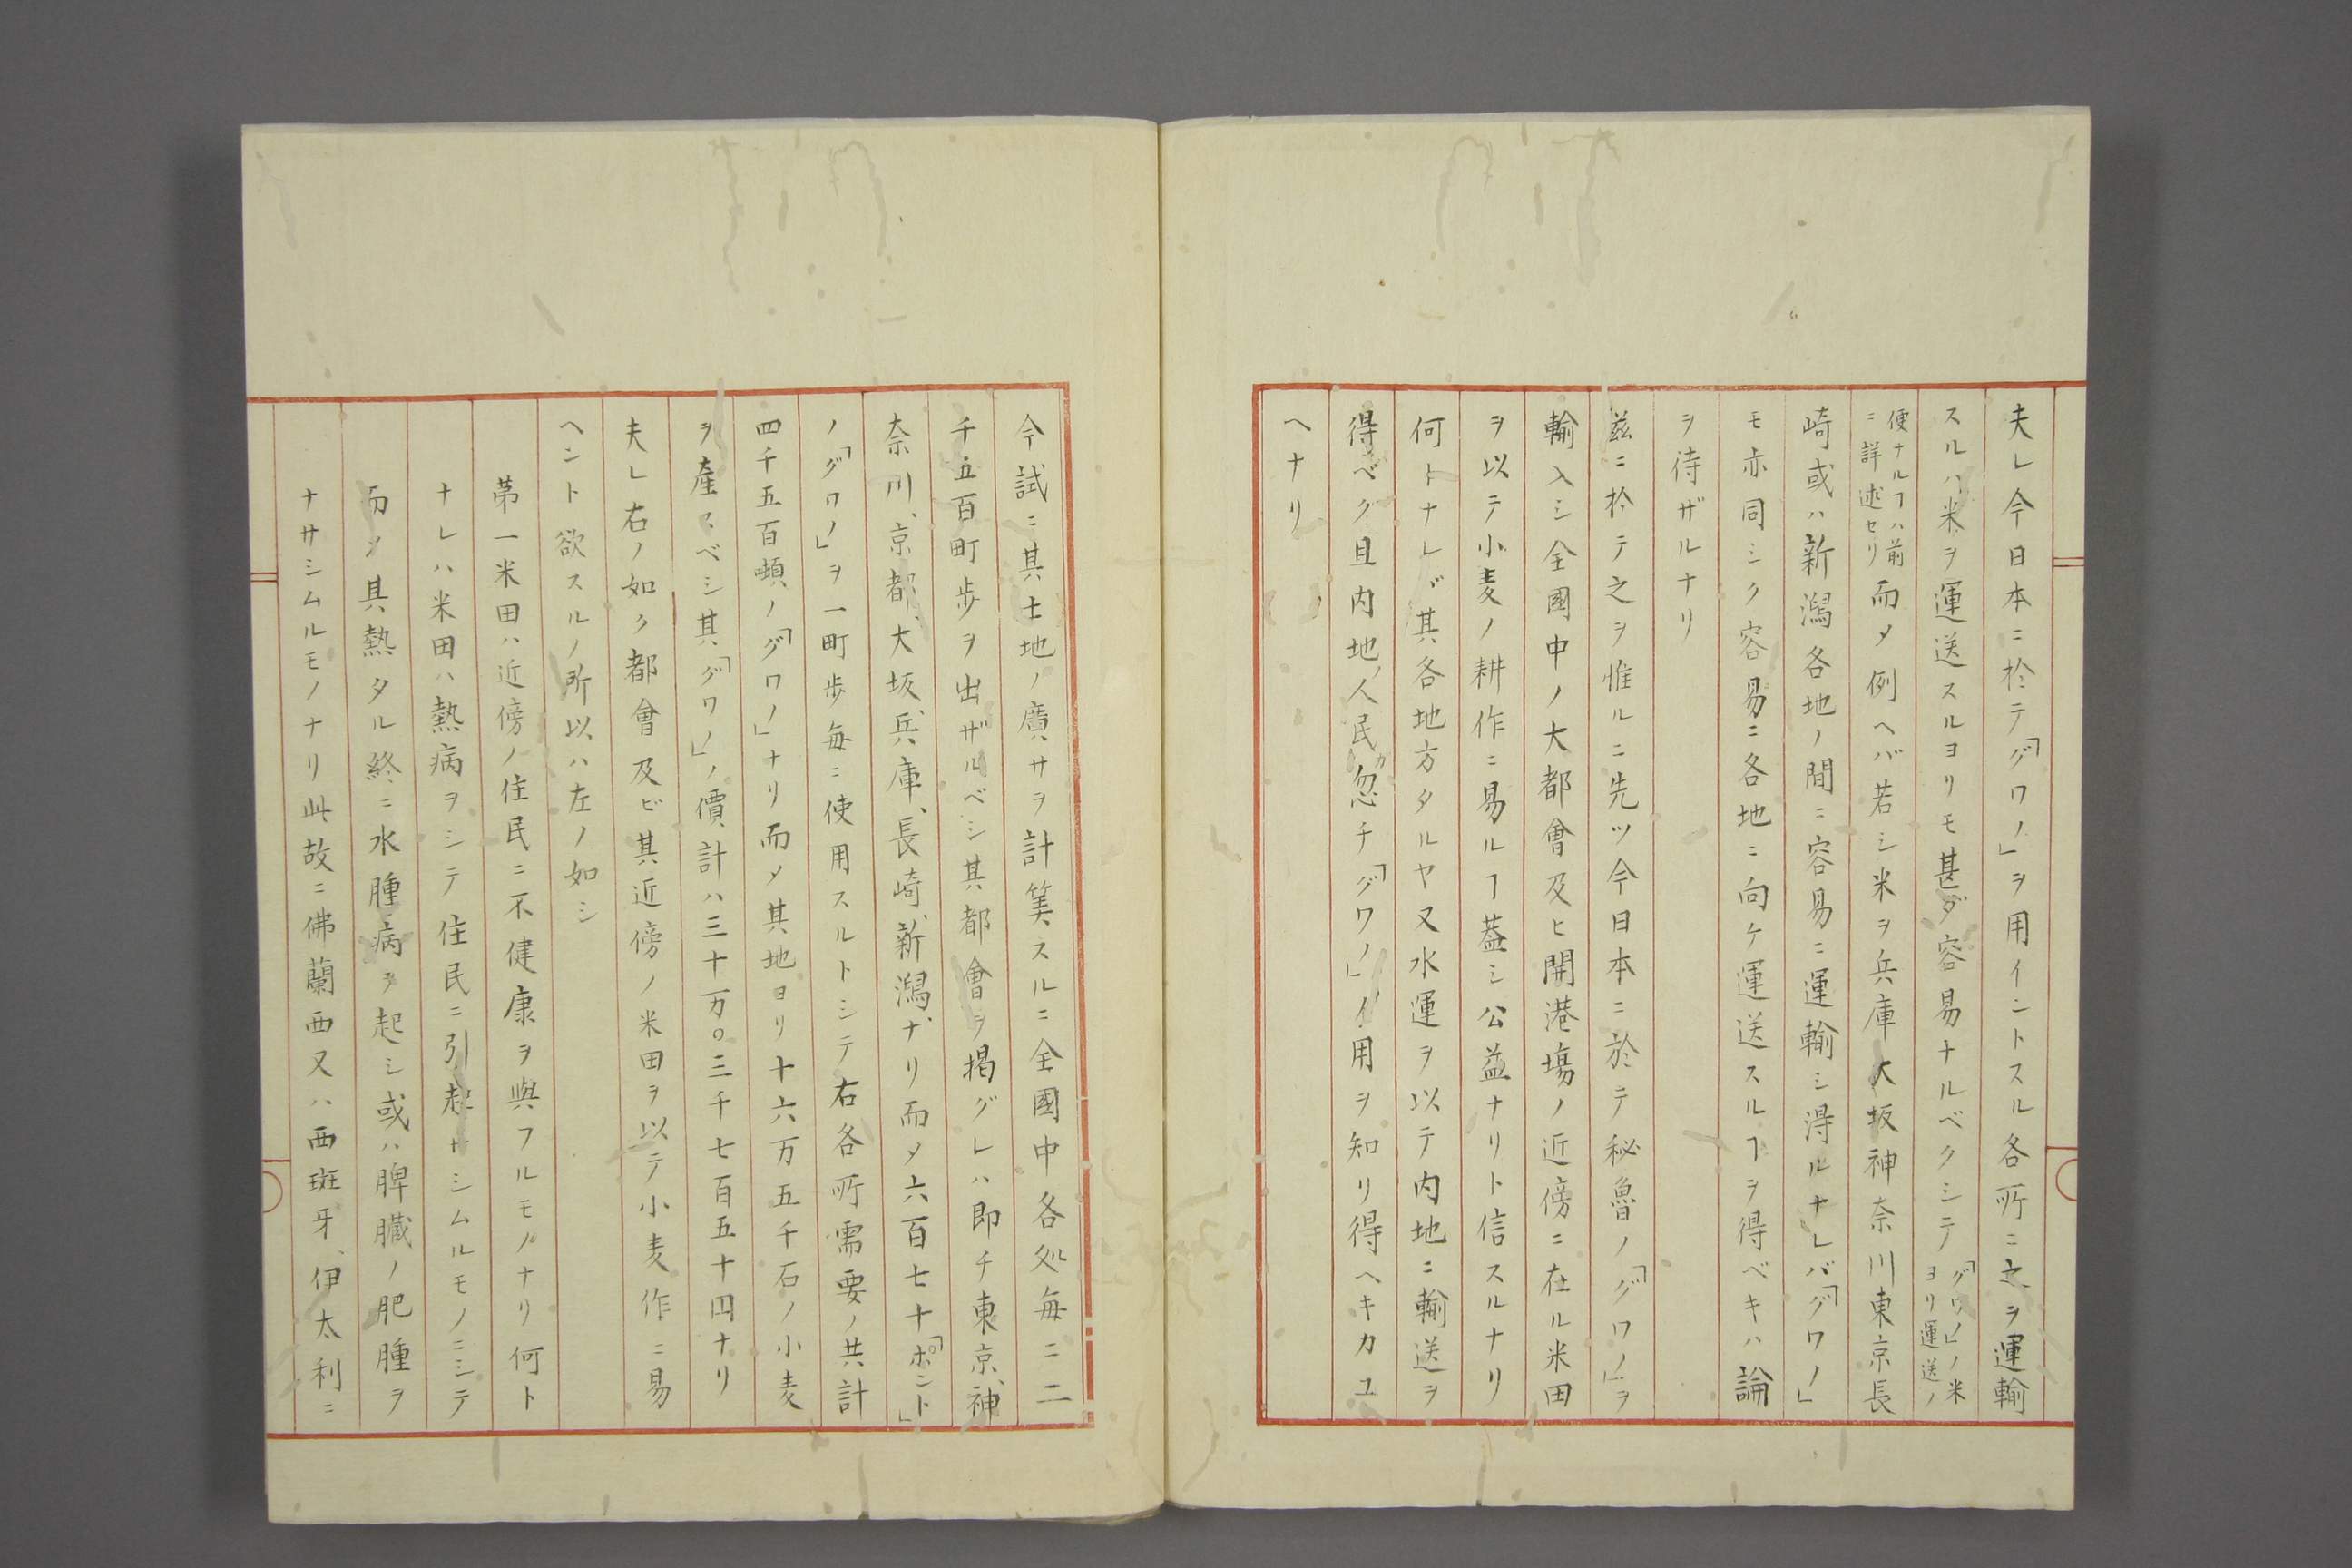 夫レ今日本ニ於テ「グワノ」ヲ用イントスル各所ニ之ヲ運輸
スルハ米ヲ運送スルヨリモ甚ダ容易ナルベクシテ「グワノ」ノ米
ヨリ運送ノ
便ナルヿハ前
ニ詳述セリ而〆例ヘバ若シ米ヲ兵庫大坂神奈川東京長
崎或ハ新潟各地ノ間ニ容易ニ運輸シ得ルナレバ「グワノ」
モ亦同シク容易ニ各地ニ向ケ運送スルヿヲ得ベキハ論
ヲ待ザルナリ
茲ニ於テ之ヲ惟ルニ先ツ今日本ニ於テ秘魯ノ「グワノ」ヲ
輸入シ全國中ノ大都會及ヒ開港塲ノ近傍ニ在ル米田
ヲ以テ小麦ノ耕作ニ易ルヿ蓋シ公益ナリト信スルナリ
何トナレバ其各地方タルヤ又水運ヲ以テ内地ニ輸送ヲ
得ベク且内地ノ人民ガ忽チ「グワノ」イ用ヲ知リ得ヘキカユ
ヘナリ
今試ニ其土地ノ廣サヲ計算スルニ全國中各処毎ニ二
千五百町歩ヲ出ザルベシ其都會ヲ掲グレハ即チ東京、神
奈川、京都、大坂、兵庫、長崎、新潟、ナリ而〆六百七十「ポント」
ノ「グワノ」ヲ一町歩毎ニ使用スルトシテ右各所需要ノ共計
四千五百噸ノ「グワノ」ナリ而〆其地ヨリ十六万五千石ノ小麦
ヲ産スベシ其「グワノ」ノ價計ハ三十万〇三千七百五十円ナリ
夫レ右ノ如ク都會及ビ其近傍ノ米田ヲ以テ小麦作ニ易
ヘント欲スルノ所以ハ左ノ如シ
第一米田ハ近傍ノ住民ニ不健康ヲ與フルモノナリ何ト
ナレハ米田ハ熱病ヲシテ住民ニ引起サシムルモノニシテ
而〆其熱タル終ニ水腫病ヲ起シ或ハ脾臓ノ肥腫ヲ
ナサシムルモノナリ此故ニ佛蘭西又ハ西班牙、伊太利ニ